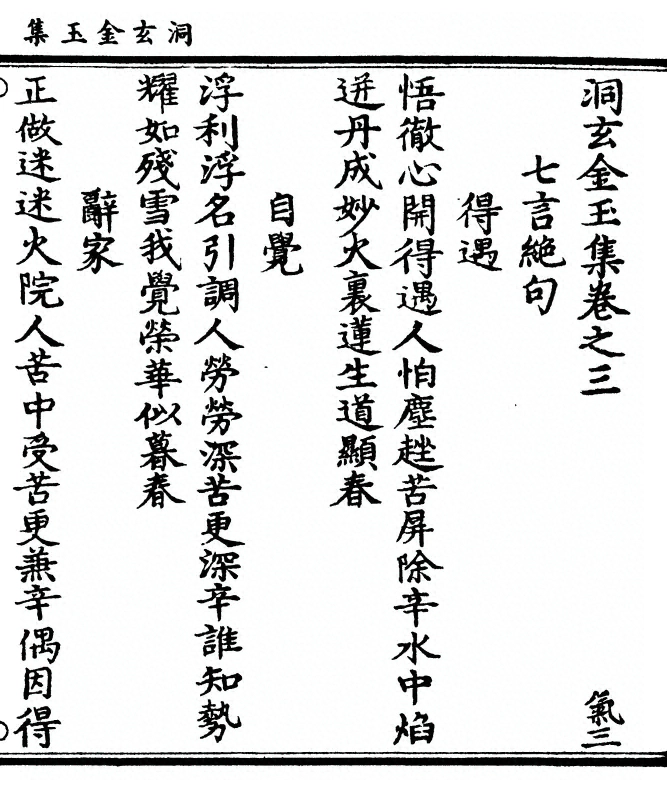 集玉金玄洞
洞玄金玉集卷之三
氣三
七言絕句
得遇
悟徹心開得遇人怕塵趖苦屏除辛水中焰
迸丹成妙火裏蓮生道顯春
自覺
浮利浮名引調人勞勞深苦更深辛誰知勢
耀如殘雪我覺榮華似暮春
辭家
正做迷迷火院人苦中受苦更兼辛偶因得